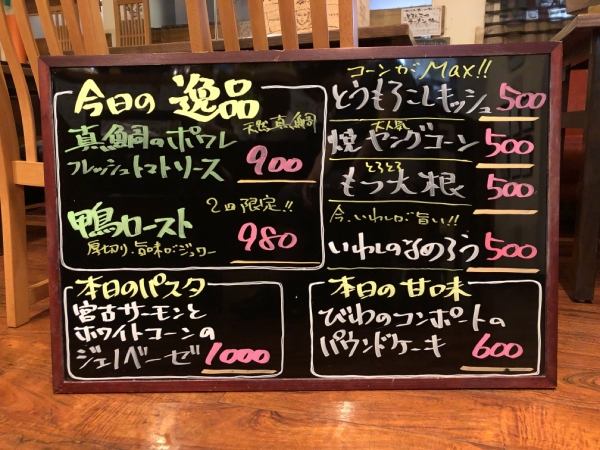 今日の 逸品
天然真鯛
真鯛のポワレ
フレッシュトマトソース 900
2回限定!!
鴨ロースト 980
厚切り、旨味がジュワー
コーンがMax!!
とうもろこしキッシュ 500
大人気
焼ヤングコーン 500
とろとろ
もつ大根 500
今、いわしが旨い!!
いわしのなめろう 500
本日のパスタ
宮古サーモンと
ホワイトコーンの
ジェノベーゼ 1000
本日の甘味
びわのコンポートの
パウンドケーキ 600